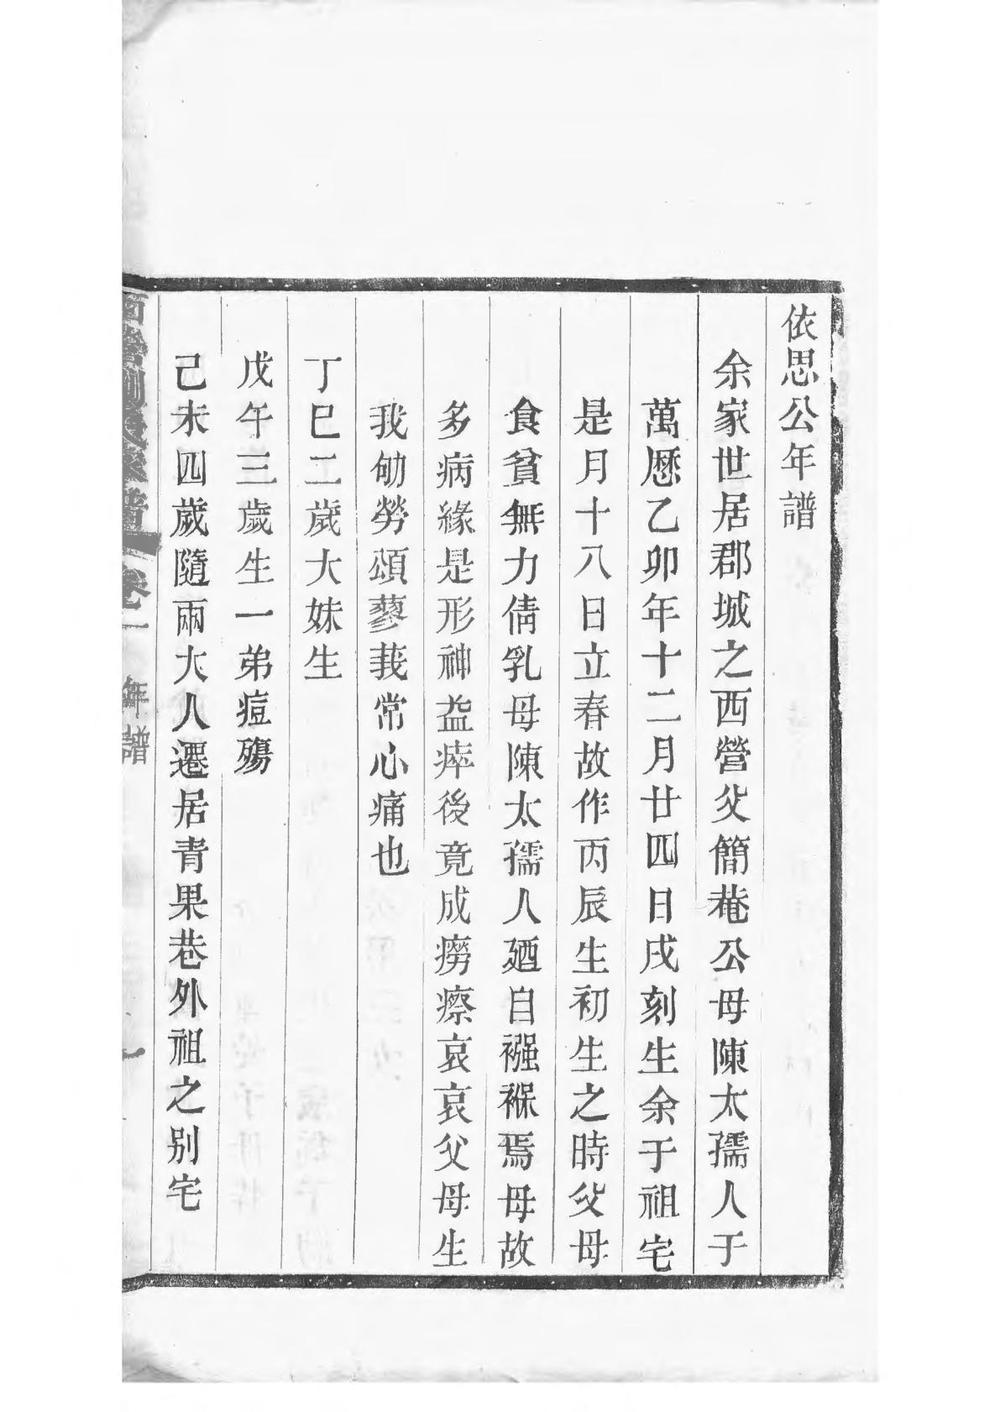 依思公年譜
余家世居郡城之西營父簡菴公母陳太孺人于
萬厯乙卯年十二月廿四日戌刻生余于祖宅
是月十八日立春故作丙辰生初生之時父母
食貧無力倩乳母陳太孺人廼自襁褓焉母故
多病緣是形神益瘁後竟成癆瘵哀哀父母生
我劬勞頌蓼莪常心痛也
丁巳二歲大妹生
戊午三歲生一弟痘殤
己未四歲隨兩大人遷居青果巷外祖之別宅
西營劉氏家譜 卷一 年譜